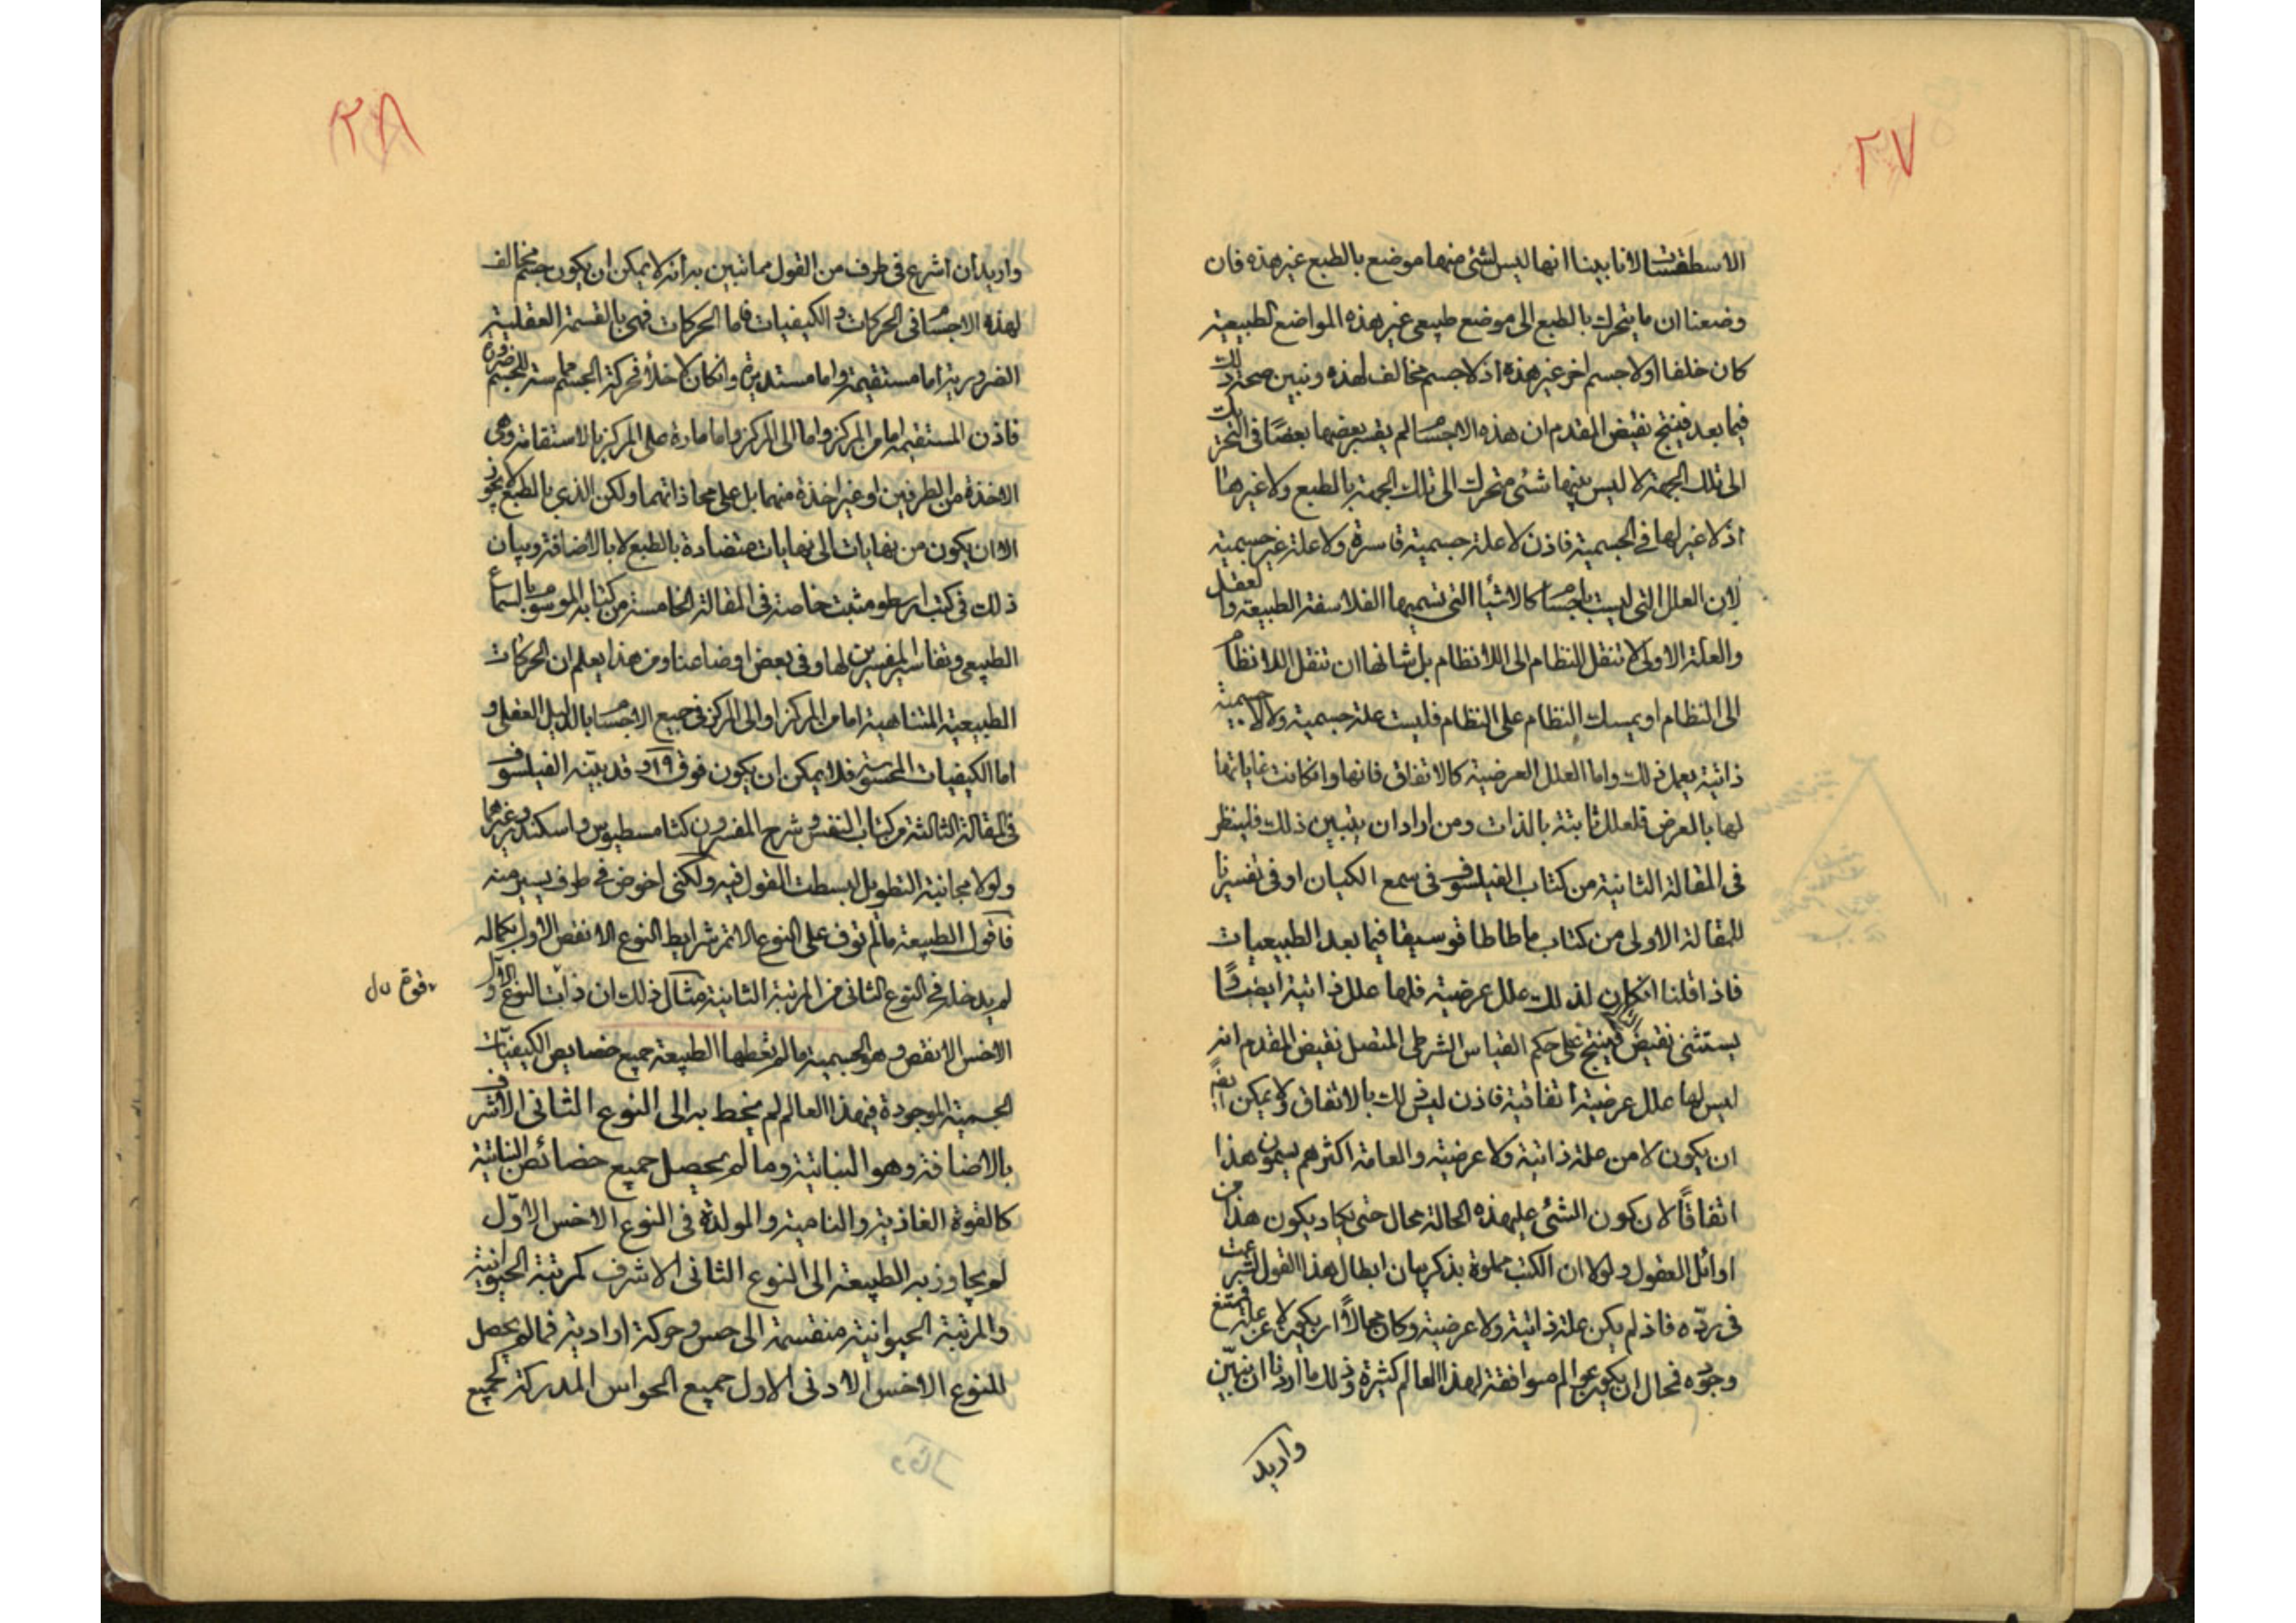 ٢٧
الاسطقسات لانا بينا انها ليس لشئ منها موضع بالطبع غير هذه فان
وضعنا ان ما يتحرك بالطبع الى موضع طبيعى غير هذه المواضع الطبيعية
كان خلفا اولا جسم اخر غير هذه اذ لا جسم مخالف لهذه ونبين صحة ذلك
فيما بعد فينتج نقيض المقدم ان هذه الاجسام لم يقسر بعضها بعضًا فى التحرك
الى تلك الجهة لا ليس فيها شئ متحرك الى تلك الجهة بالطبع ولا غيرها
اذ لا غير لها فى الجسمية فاذن لا علة جسمية قاسرة ولا علة غير جسمية
لان العلل التى ليست باجسام كالاشيا التى تسميها الفلاسفة الطبيعة والعقل
والعلة الاولى لا تنقل النظام الى اللانظام بل شانها ان تنقل اللانظام
الى النظام او يمسك النظام على النظام فليست علة جسمية ولا لاجسمية
ذاتية يعمل ذلك واما العلل العرضية كالاتفاق فانها وان كانت غاياتها
لها بالعرض فلعلل ثابتة بالذات ومن اراد ان يتبين ذلك فلينظر
فى المقالة الثانية من كتاب الفيلسوف فى سمع الكيان او فى تفسيرنا
للمقالة الاولى من كتاب ماطاطافوسيقا فيما بعد الطبيعيات
فاذا قلنا ان كان لذلك علل عرضية فلها علل ذاتية ايضًا و
يستثنى نقيض التالى فينتج على حكم القياس الشرطى المتصل نقيض المقدم انه
ليس لها علل عرضية اتفاقية فاذن ليس ذلك بالاتفاق ولا يمكن ايضًا
ان يكون لا من علة ذاتية ولا عرضية والعامة اكثرهم يسمون هذا
اتفاقًا لان كون الشئ على هذه الحالة محال حتى يكاد يكون هذا من
اوائل العقول ولولا ان الكتب مملوة بذكر بيان ابطال هذا القول لشرعت
فى ردّه فاذ لم يكن علة ذاتية ولا عرضية وكان محالاً ان يكون لا عن علة فممتنع
وجوده فمحال ان يكون عوالم موافقة لهذا العالم كثيرة وذلك ما اردنا ان نبيّن
واريد
٢٨
واريد ان اشرع فى طرف من القول مما نبين به انه لا يمكن ان يكون جسم مخالف
لهذه الاجسام فى الحركات و الكيفيات فاما الحركات فهى بالقسمة العقلية
الضرورية اما مستقيمة واما مستديرة وان كان لا خلأ فحركة الجسم مماسة للجسم ضرورة
فاذن المستقيمة اما من المركز واما الى المركز واما مارة على المركز بالاستقامة وهى
الاخذة من الطرفين او غير اخذة منهما بل على محاذاتهما ولكن الذى بالطبع لا يجوز
الا ان يكون من نهايات الى نهايات متضادة بالطبع لا بالاضافة وبيان
ذلك فى كتب ارسطو مثبت خاصة فى المقالة الخامسة من كتابه الموسوم بالسماع
الطبيعى وتفاسير المفسرين لها وفى بعض اوضاعنا ومن هذا يعلم ان الحركات
الطبيعية المتناهية اما من المركز او الى المركز فى جميع الاجسام بالدليل العقلى و
اما الكيفيات المحسوسة فلا يمكن ان يكون فوق ١٩ و قد بيّنه الفيلسوف
فى المقالة الثالثة من كتاب النفس و شرح المفسرون كثامسطيوس واسكندر وغيرهما
ولولا مجانبة التطويل لبسطت القول فيه ولكنى اخوض فى طرف يسير منه
فاقول الطبيعة ما لم توف على النوع الاتم شرايط النوع الانقص الاول بكماله
لم يدخله فى النوع الثانى من المرتبة الثانية مثال ذلك ان ذات النوع الاول و
الاخس الانقص وهو الجسمية ما لم تعطها الطبيعة جميع خصايص الكيفيّات
الجسمية الموجودة فى هذا العالم لم يخط به الى النوع الثانى الاشرف
بالاضافة وهو النباتية وما لم يحصل جميع خصائص النباتية
كالقوة الغاذية والنامية والمولدة فى النوع الاخس الاوّل
لم يجاوز به الطبيعة الى النوع الثانى الاشرف كمرتبة الحيوانية
والمرتبة الحيوانية منقسمة الى حس وحركة ارادية فما لم يحصل
للنوع الاخس الادنى الاول جميع الحواس المدركة لجميع